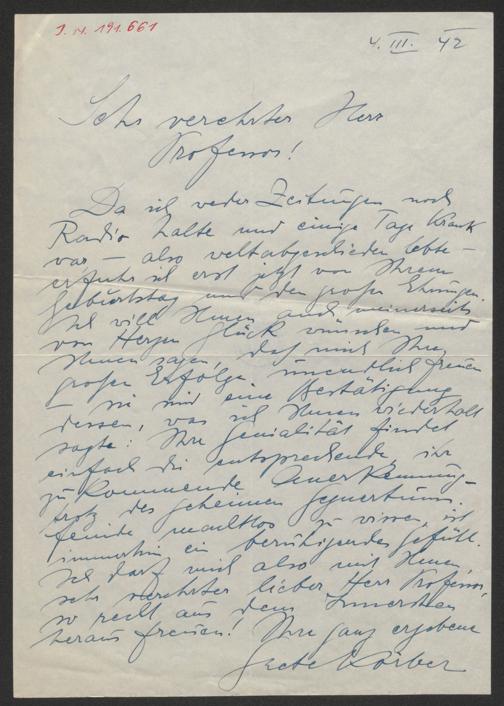 J. N. 191.661
4. III. 42
Sehr verehrter Herr
Professor!
Da ich weder Zeitungen noch
Radio halte und einige Tage krank
war — also weltabgeschieden lebte —
erfuhr ich erst jetzt von Ihrem
Geburtstag und den großen Ehrungen.
Ich will Ihnen auch meinerseits
von Herzen Glück wünschen und
Ihnen sagen, daß mich Ihre
großen Erfolge unendlich freuen
— sie sind eine Bestätigung
dessen, was ich Ihnen wiederholt
sagte: Ihre Genialität findet
einfach die entsprechende, ihr
zu kommende Anerkennung —
trotz des geheimen
Feinde machtlos zu wissen, ist
immerhin ein beruhigendes Gefühl.
Ich darf mich also mit Ihnen,
sehr verehrter lieber Herr Professor,
so recht aus dem Innersten
heraus freuen! Ihre ganz ergebene
Grete Körber